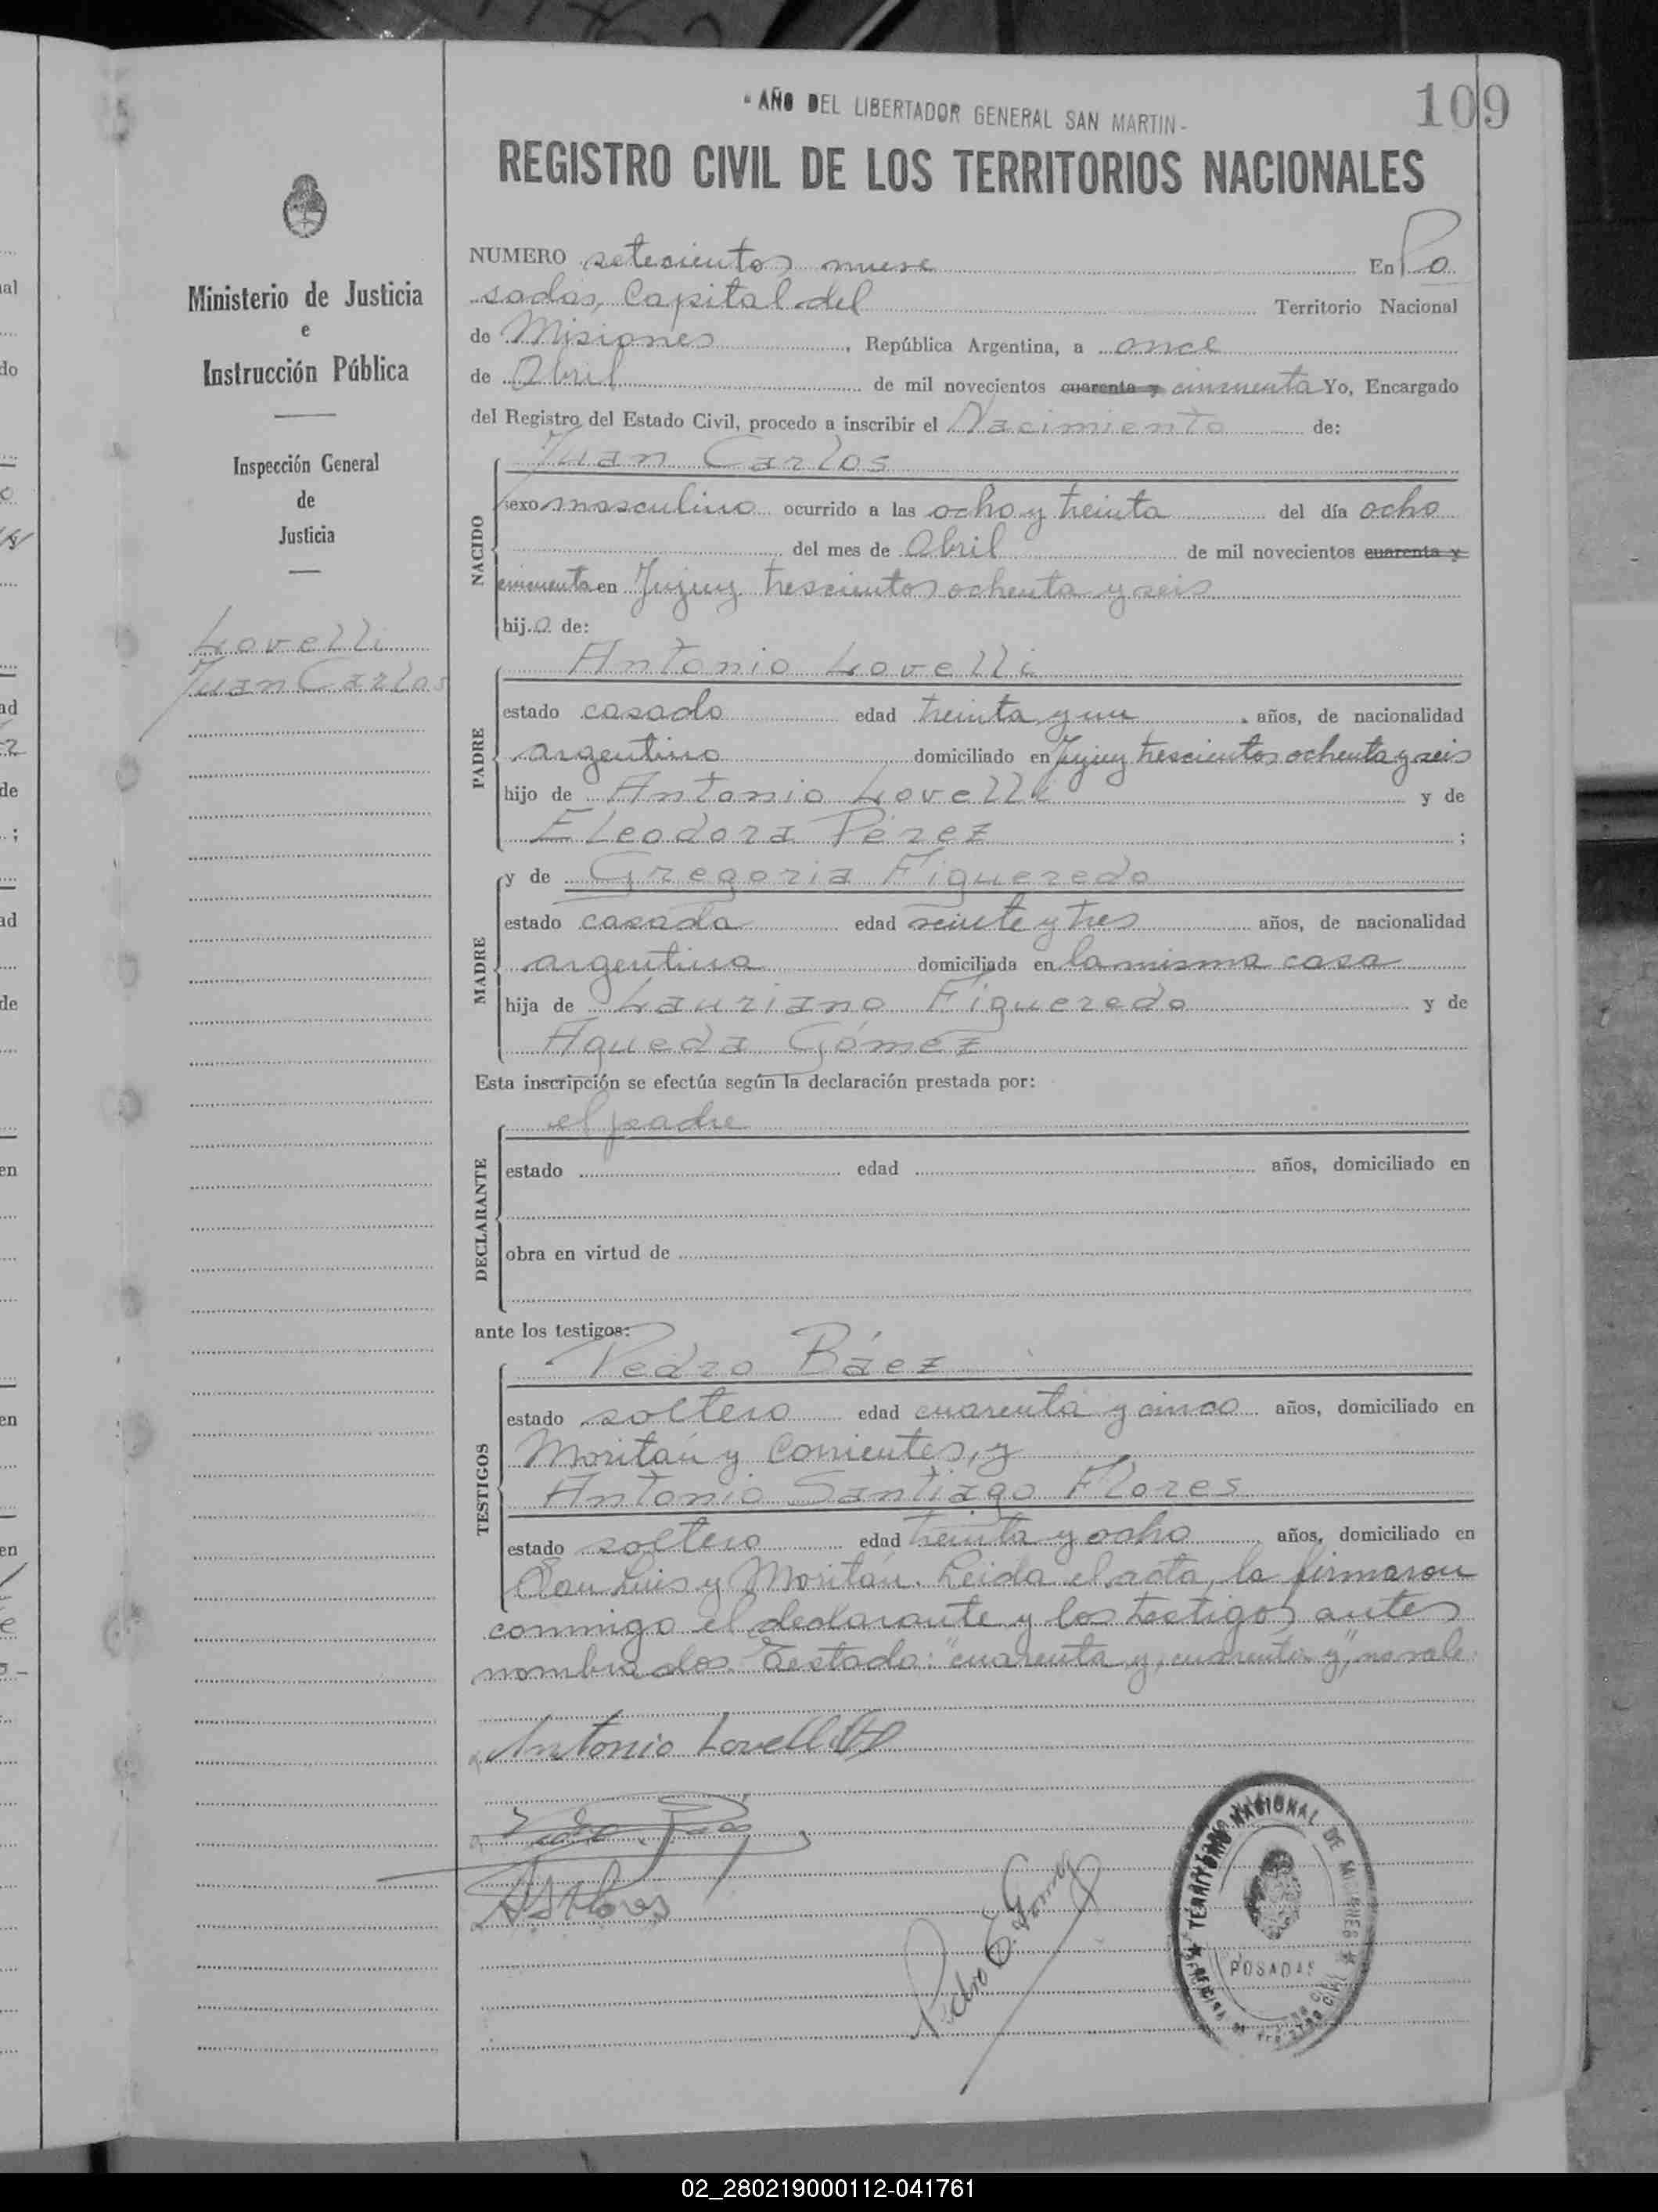 "AÑO DEL LIBERTADOR GENERAL SAN MARTIN-
109
REGISTRO CIVIL DE LOS TERRITORIOS NACIONALES
Ministerio de Justicia
e
Instrucción Pública
Inspección General
de
Justicia
Lovelli
Juan Carlos
NUMERO setecientos nueve En Po
sadas, Capital del Territorio Nacional
de Misiones, República Argentina, a once
de Abril de mil novecientos cuarenta y cincuenta Yo, Encargado
del Registro del Estado Civil, procedo a inscribir el Nacimiento de:
NACIDO
Juan Carlos
sexo masculino ocurrido a las ocho y treinta del día ocho
del mes de Abril de mil novecientos cuarenta y
cincuenta en Jujuy trescientos ochenta y seis
hijo de:
PADRE
Antonio Lovelli
estado casado edad treinta y un años, de nacionalidad
argentino domiciliado en Jujuy trescientos ochenta y seis
hijo de Antonio Lovelli y de
Eleodora Pérez;
MADRE
y de Gregoria Figueredo
estado casada edad veinte y tres años, de nacionalidad
argentina domiciliada en la misma casa
hija de Lauriano Figueredo y de
Agueda Gómez
Esta inscripción se efectúa según la declaración prestada por:
DECLARANTE
el padre
estado edad años, domiciliado en
obra en virtud de
ante los testigos:
TESTIGOS
Pedro Báez
estado soltero edad cuarenta y cinco años, domiciliado en
Moritán y Corrientes, y
Antonio Santiago Flores
estado soltero edad treinta y ocho años, domiciliado en
San Luis y Moritán. Leida el acta, la firmaron
conmigo el declarante y los testigos antes
nombrados. Testado: "cuarenta y, cuarenta y", no vale.
Antonio Lovelli
ASFlores
Pedro E. Gomez
TERRITORIO NACIONAL DE MISIONES
POSADAS
02_280219000112-041761